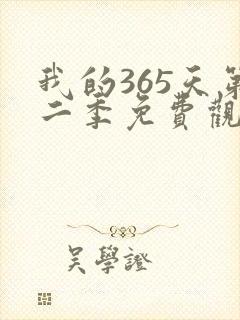 我的365天第
二季免費觀
吴學證